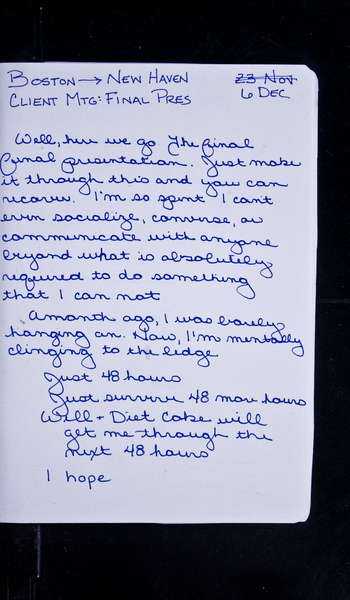 BOSTON → NEW HAVEN
23 NOV
CLIENT MTG: FINAL PRES
6 DEC
Well, here we go. The final
final presentation. Just make
it through this and you can
recover. I'm so spent I can't
even socialize, converse, or
communicate with anyone
beyond what is absolutely
required to do something
that I can not
A month ago, I was barely
hanging on. Now, I'm mentally
clinging to the ledge
Just 48 hours
Just survive 48 more hours
Will + Diet Coke will
get me through the
next 48 hours
I hope